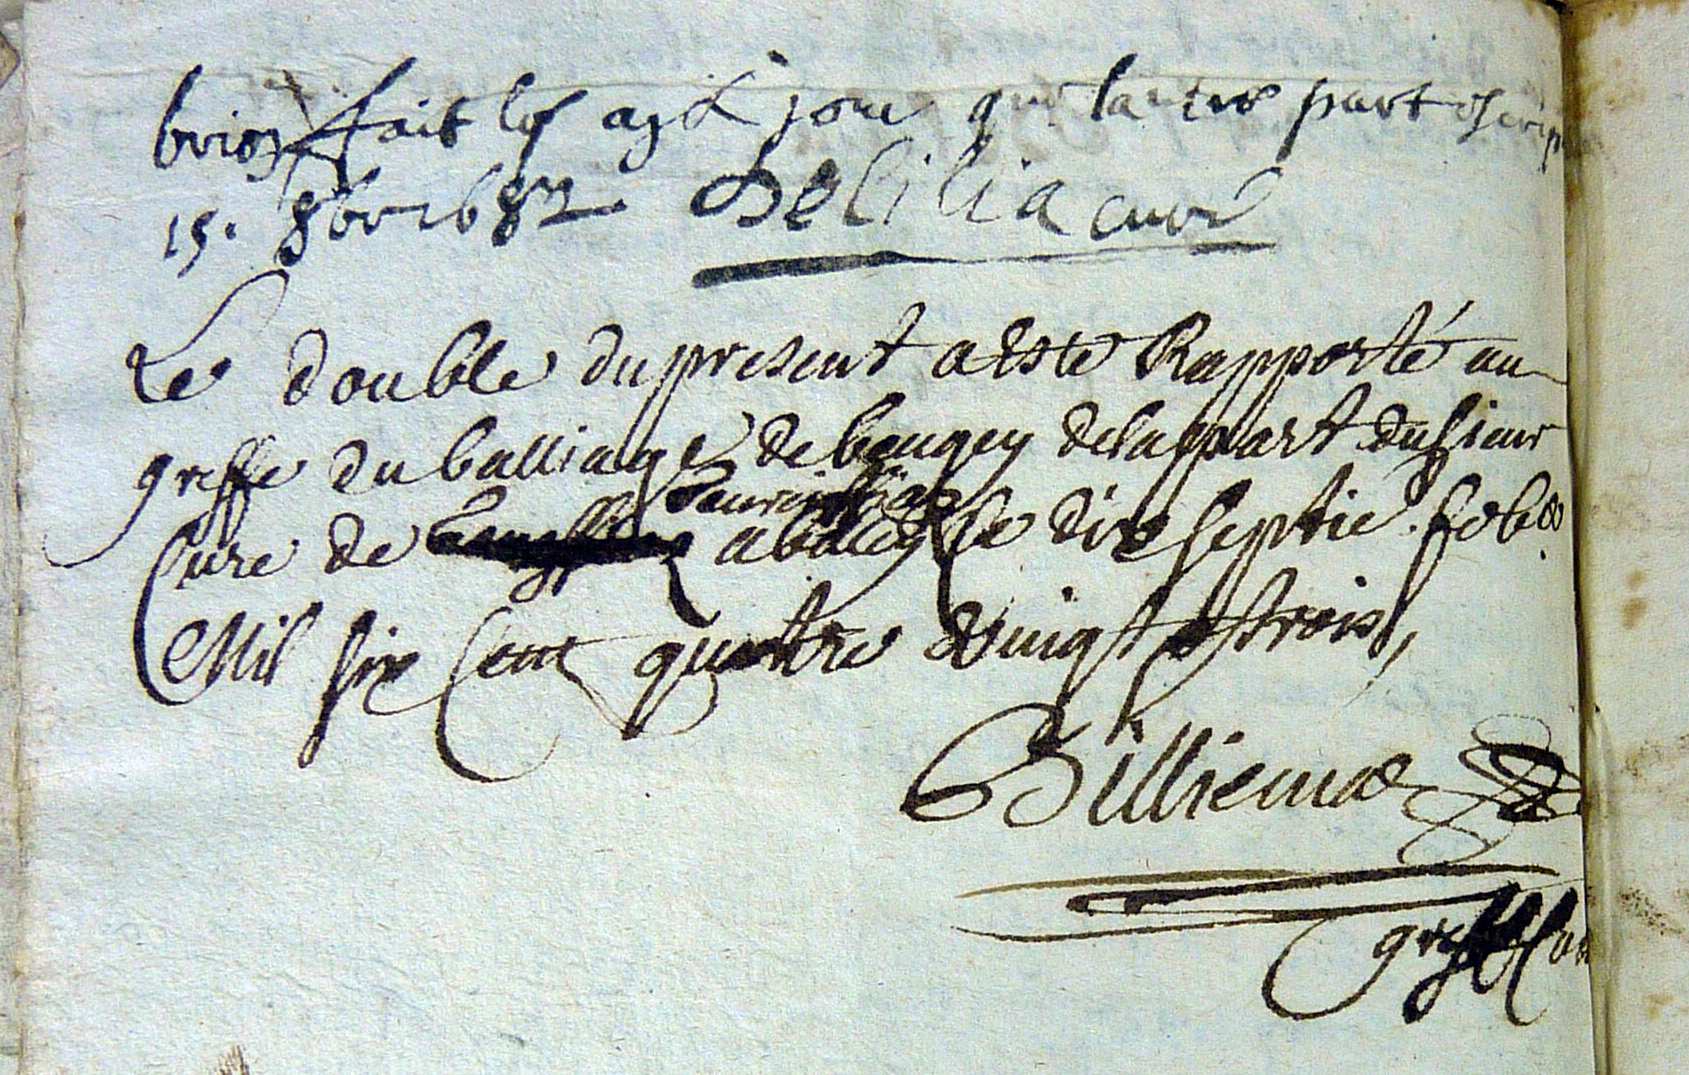 fait les an & jour que l'autre part
15. 8bre 1682 Delilia curé
Le double du present aeste Rapporté au
greffe du balliage de beugey de la part du sieur
Curé de a belley le dix septie. feb.
Mil six Cent quattre Vuingt et trois,
Billiemaz